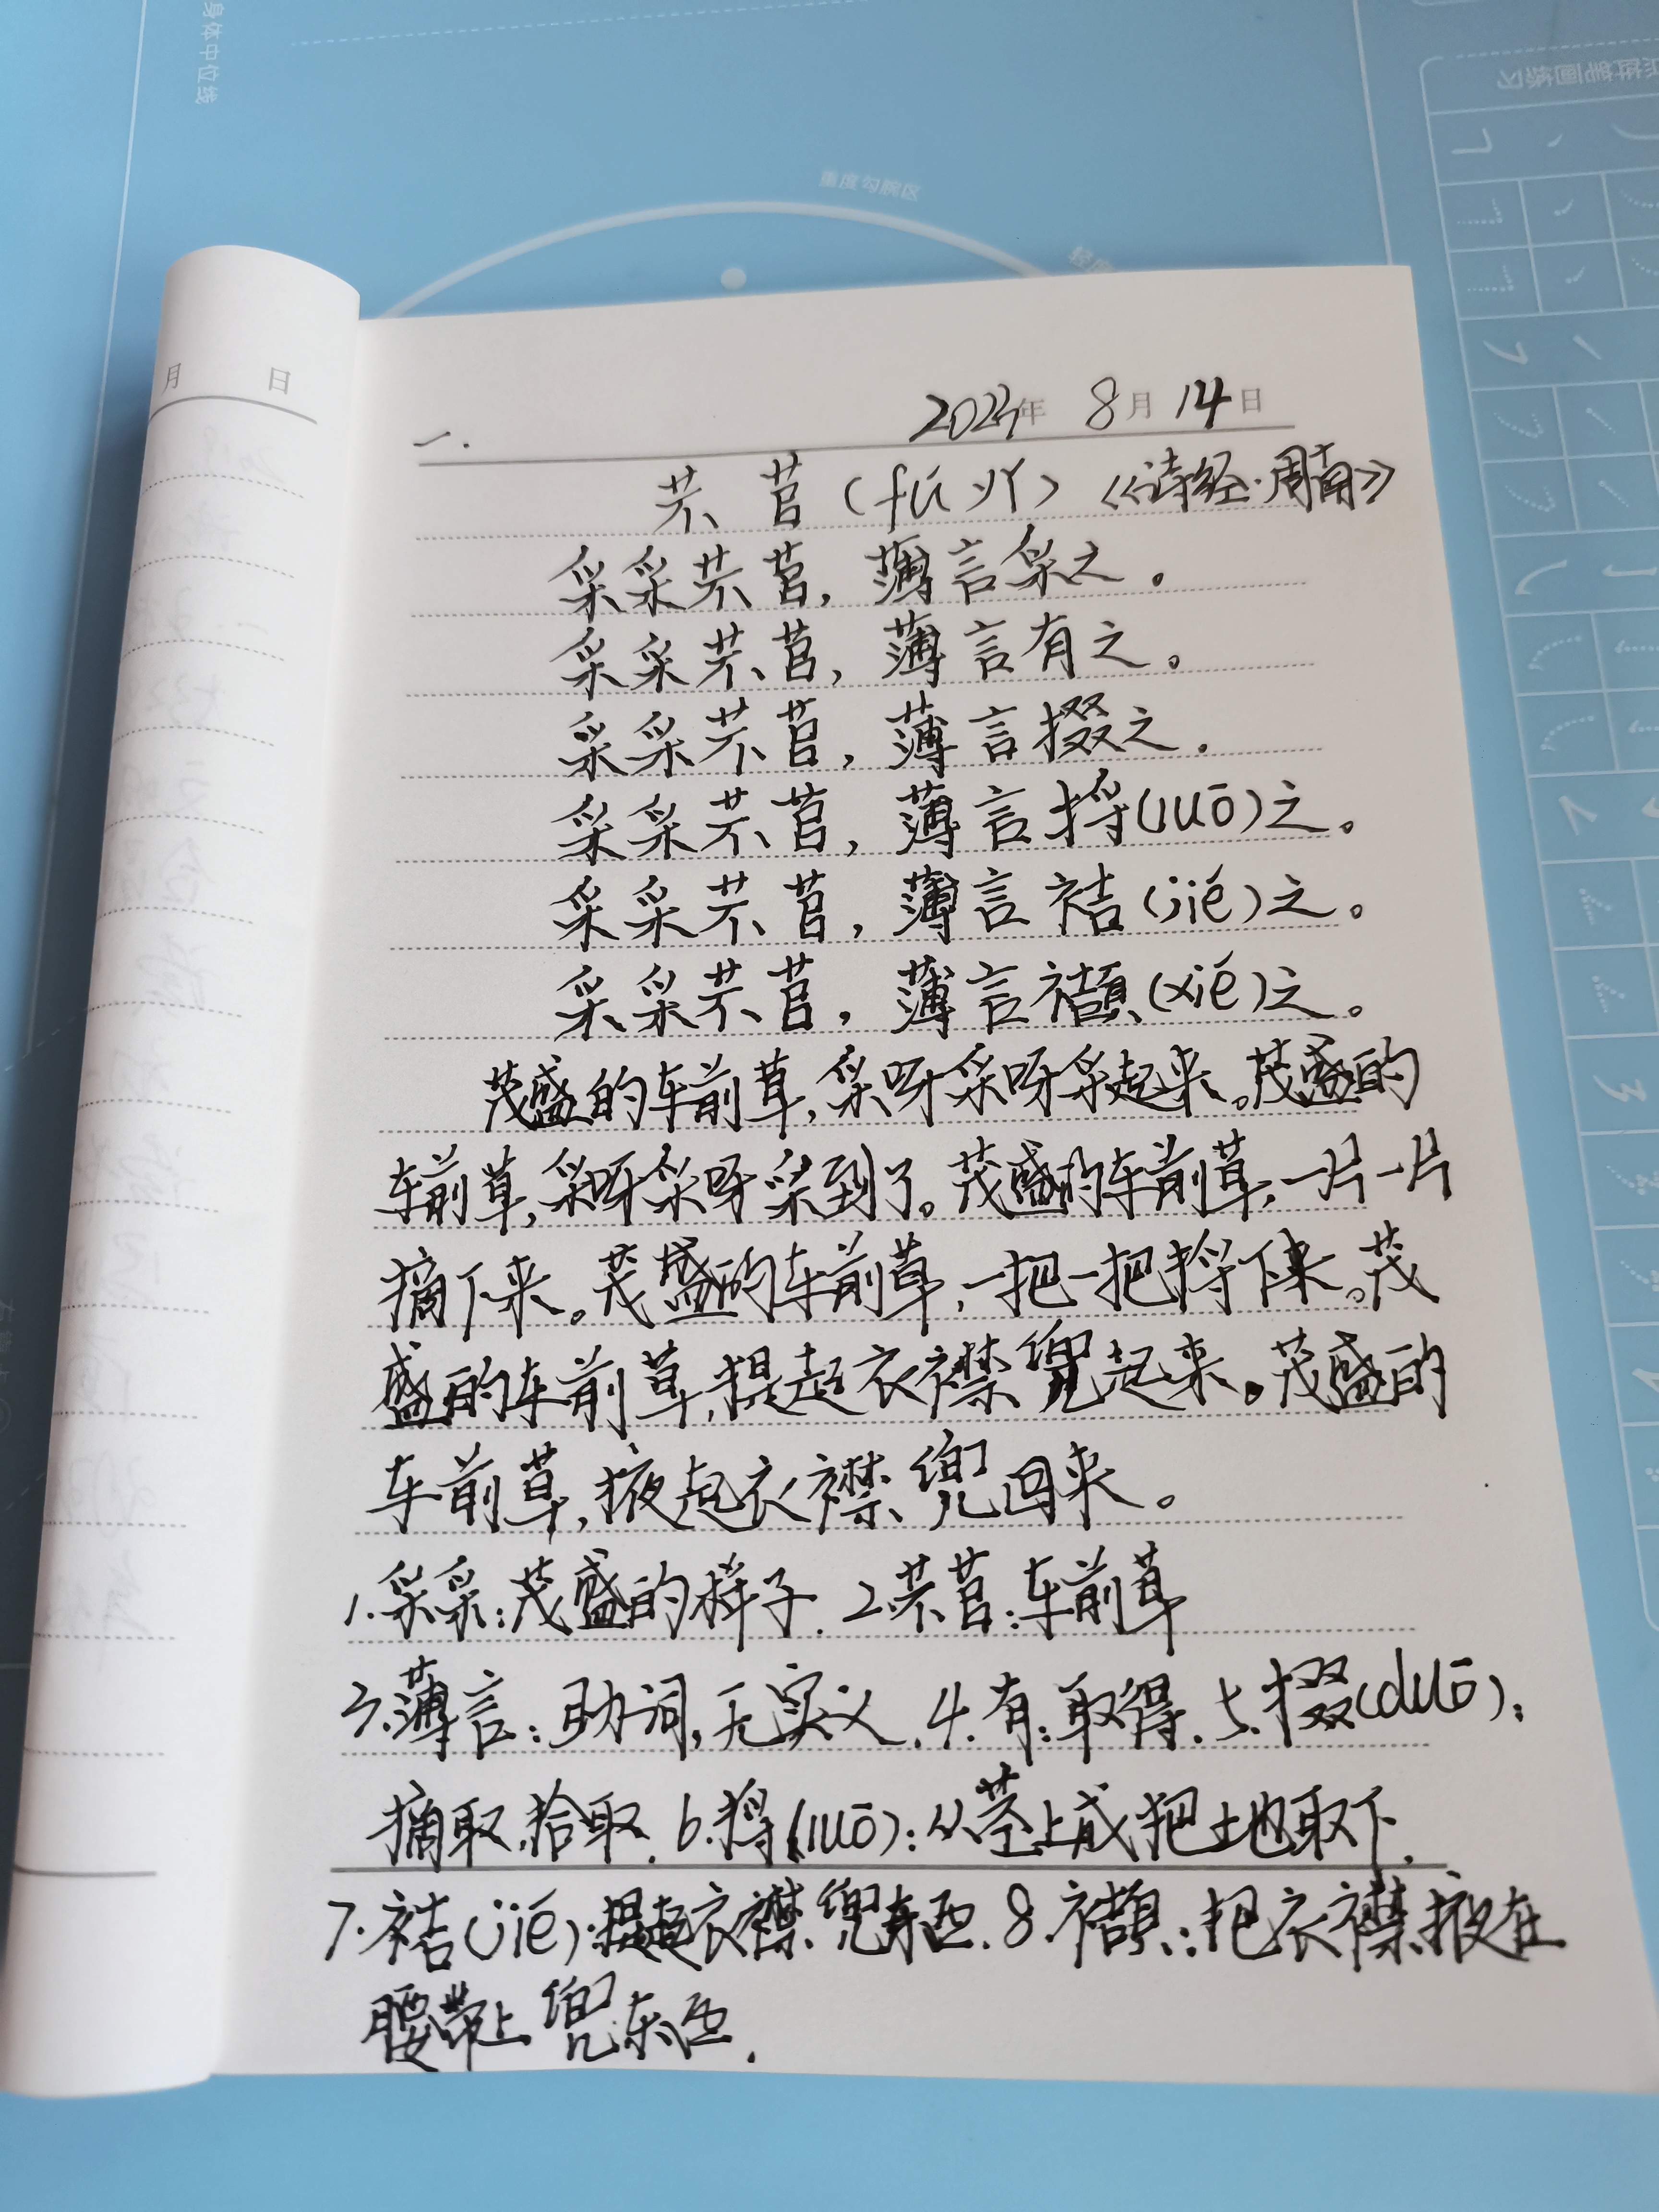 身体中位线
重度勾腕区
月 日
年 8月14日
一.
芣苢(fú yǐ)《诗经·周南》
采采芣苢,薄言采之。
采采芣苢,薄言有之。
采采芣苢,薄言掇之.
采采芣苢,薄言捋(luō)之。
采采芣苢,薄言袺(jié)之。
采采芣苢,薄言襭(xié)之。
茂盛的车前草,采呀采呀采起来。茂盛的
车前草,采呀采呀采到了。茂盛的车前草,一片一片
摘下来。茂盛的车前草,一把一把捋下来。茂
盛的车前草,提起衣襟兜起来。茂盛的
车前草,掖起衣襟兜回来。
1.采采:茂盛的样子. 2.芣苢:车前草
3.薄言:助词,无实义. 4.有:取得. 5.掇(duō):
摘取,拾取. 6.捋(luō):从茎上成把土地取下.
7.袺(jié):提起衣襟兜东西. 8.襭:把衣襟掖在
腰带上兜东西.